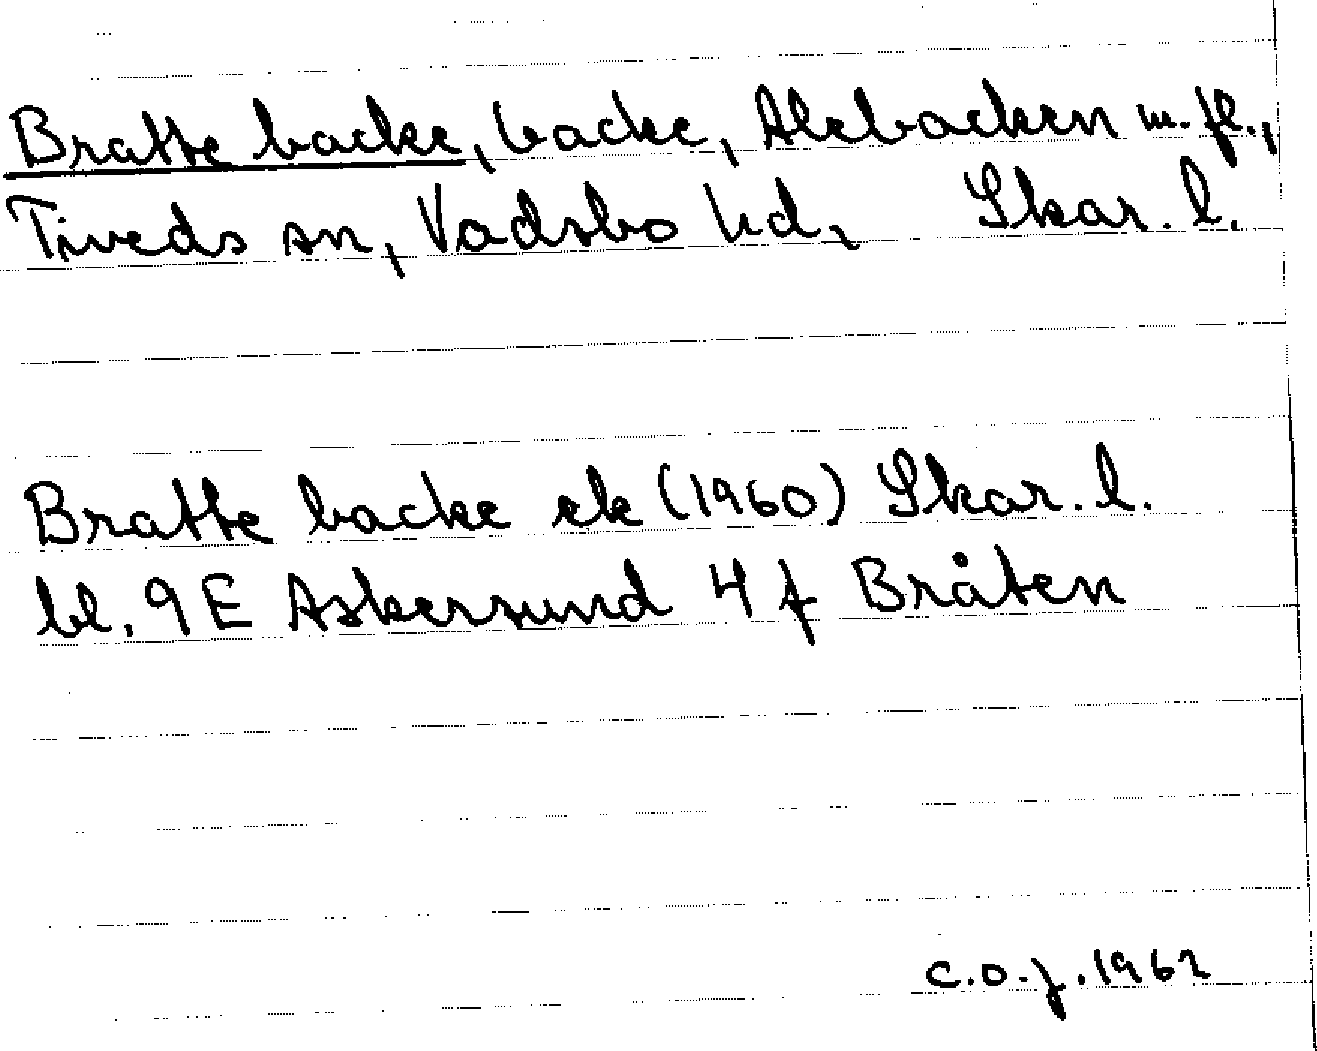 Bratte backe, backe, Alebacken m.fl.,
Tiveds sn, Vadsbo hd, Skar. l.
Bratte backe ek (1960) Skar. l.
bl. 9E Askersund 4f Bråten
C.O.J. 1962